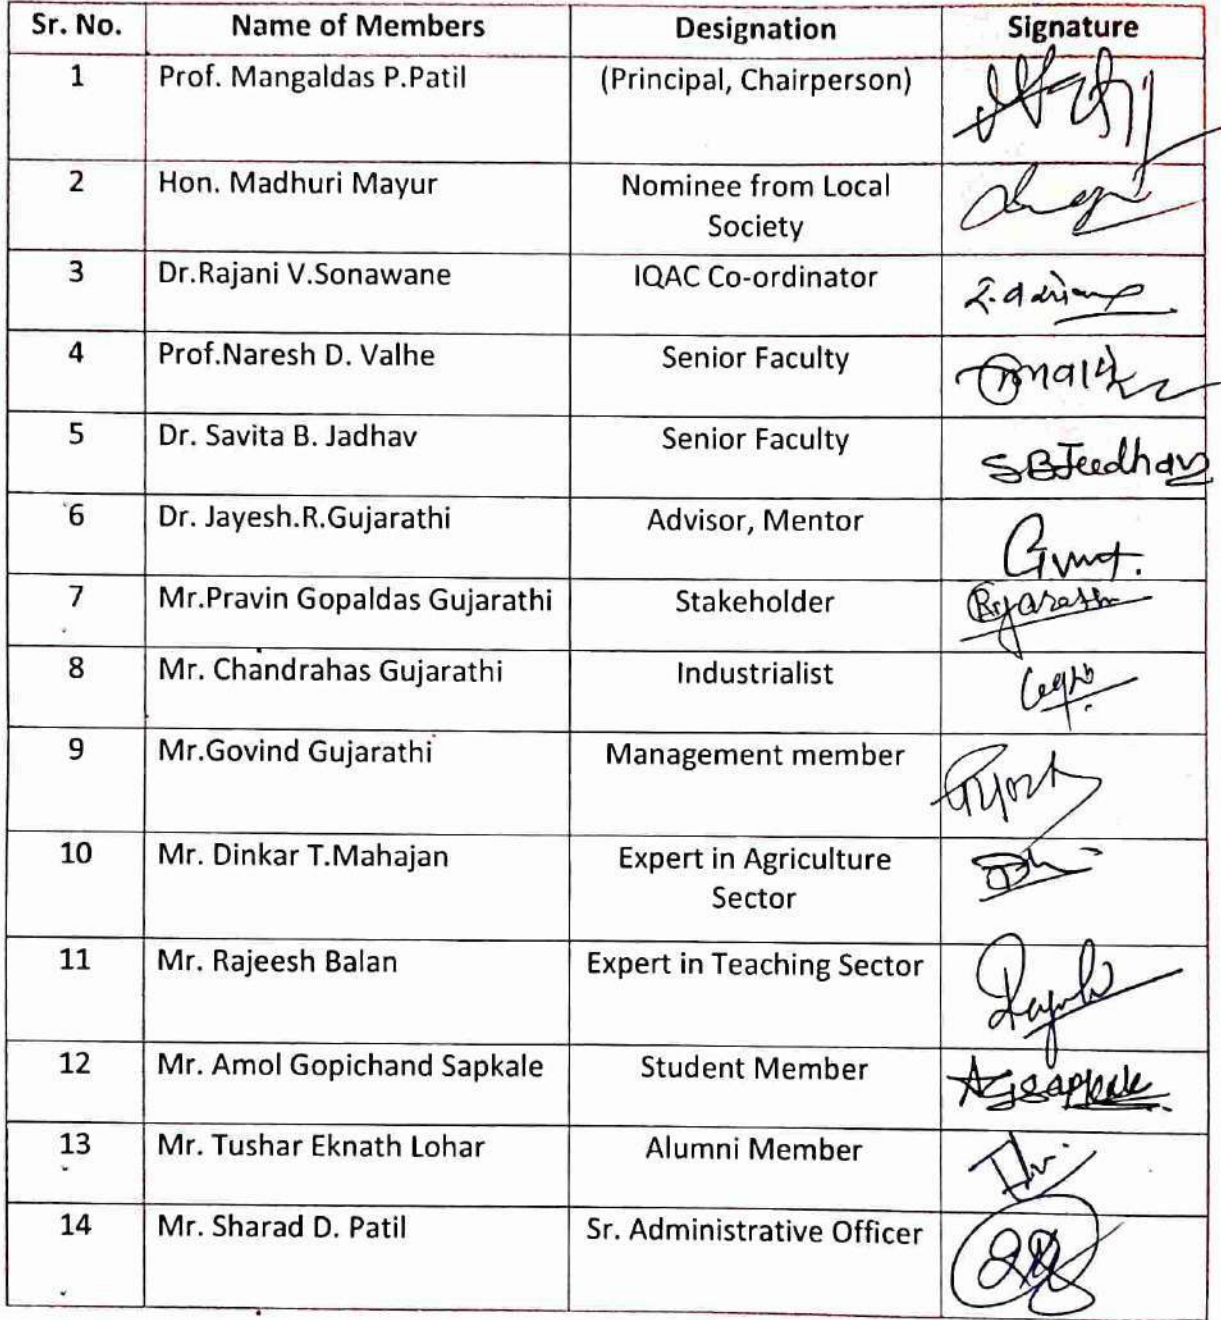 Sr. No. Name of Members Designation Signature
1 Prof. Mangaldas P.Patil (Principal, Chairperson)
2 Hon. Madhuri Mayur Nominee from Local
Society
3 Dr.Rajani V.Sonawane IQAC Co-ordinator
4 Prof.Naresh D. Valhe Senior Faculty
5 Dr. Savita B. Jadhav Senior Faculty
SBJeedhav
6 Dr. Jayesh.R.Gujarathi Advisor, Mentor
7 Mr.Pravin Gopaldas Gujarathi Stakeholder
8 Mr. Chandrahas Gujarathi Industrialist
9 Mr.Govind Gujarathi Management member
10 Mr. Dinkar T.Mahajan Expert in Agriculture
Sector
11 Mr. Rajeesh Balan Expert in Teaching Sector
12 Mr. Amol Gopichand Sapkale Student Member
AGSapkale
13 Mr. Tushar Eknath Lohar Alumni Member
14 Mr. Sharad D. Patil Sr. Administrative Officer